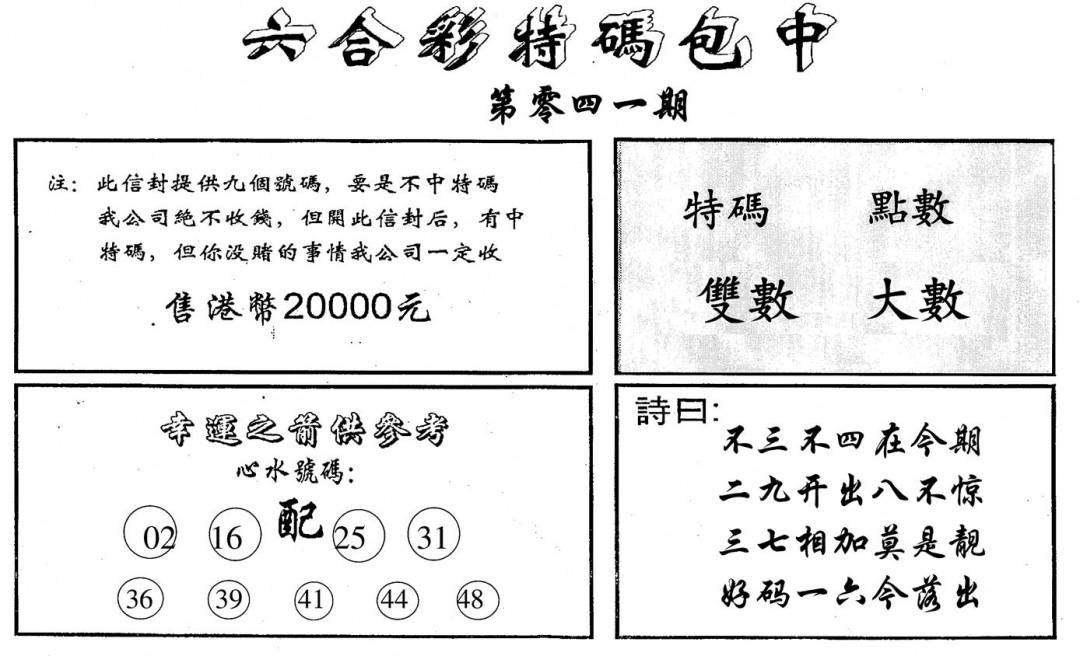 六合彩特碼包中
第零四一期
注：此信封提供九個號碼，要是不中特碼
我公司絕不收錢，但開此信封后，有中
特碼，但你没賭的事情我公司一定收
售港幣20000元
特碼 點數
雙數 大數
幸運之箭供參考
心水號碼：
配
02 16 25 31
36 39 41 44 48
詩曰：
不三不四在今期
二九开出八不惊
三七相加莫是靚
好码一六今落出